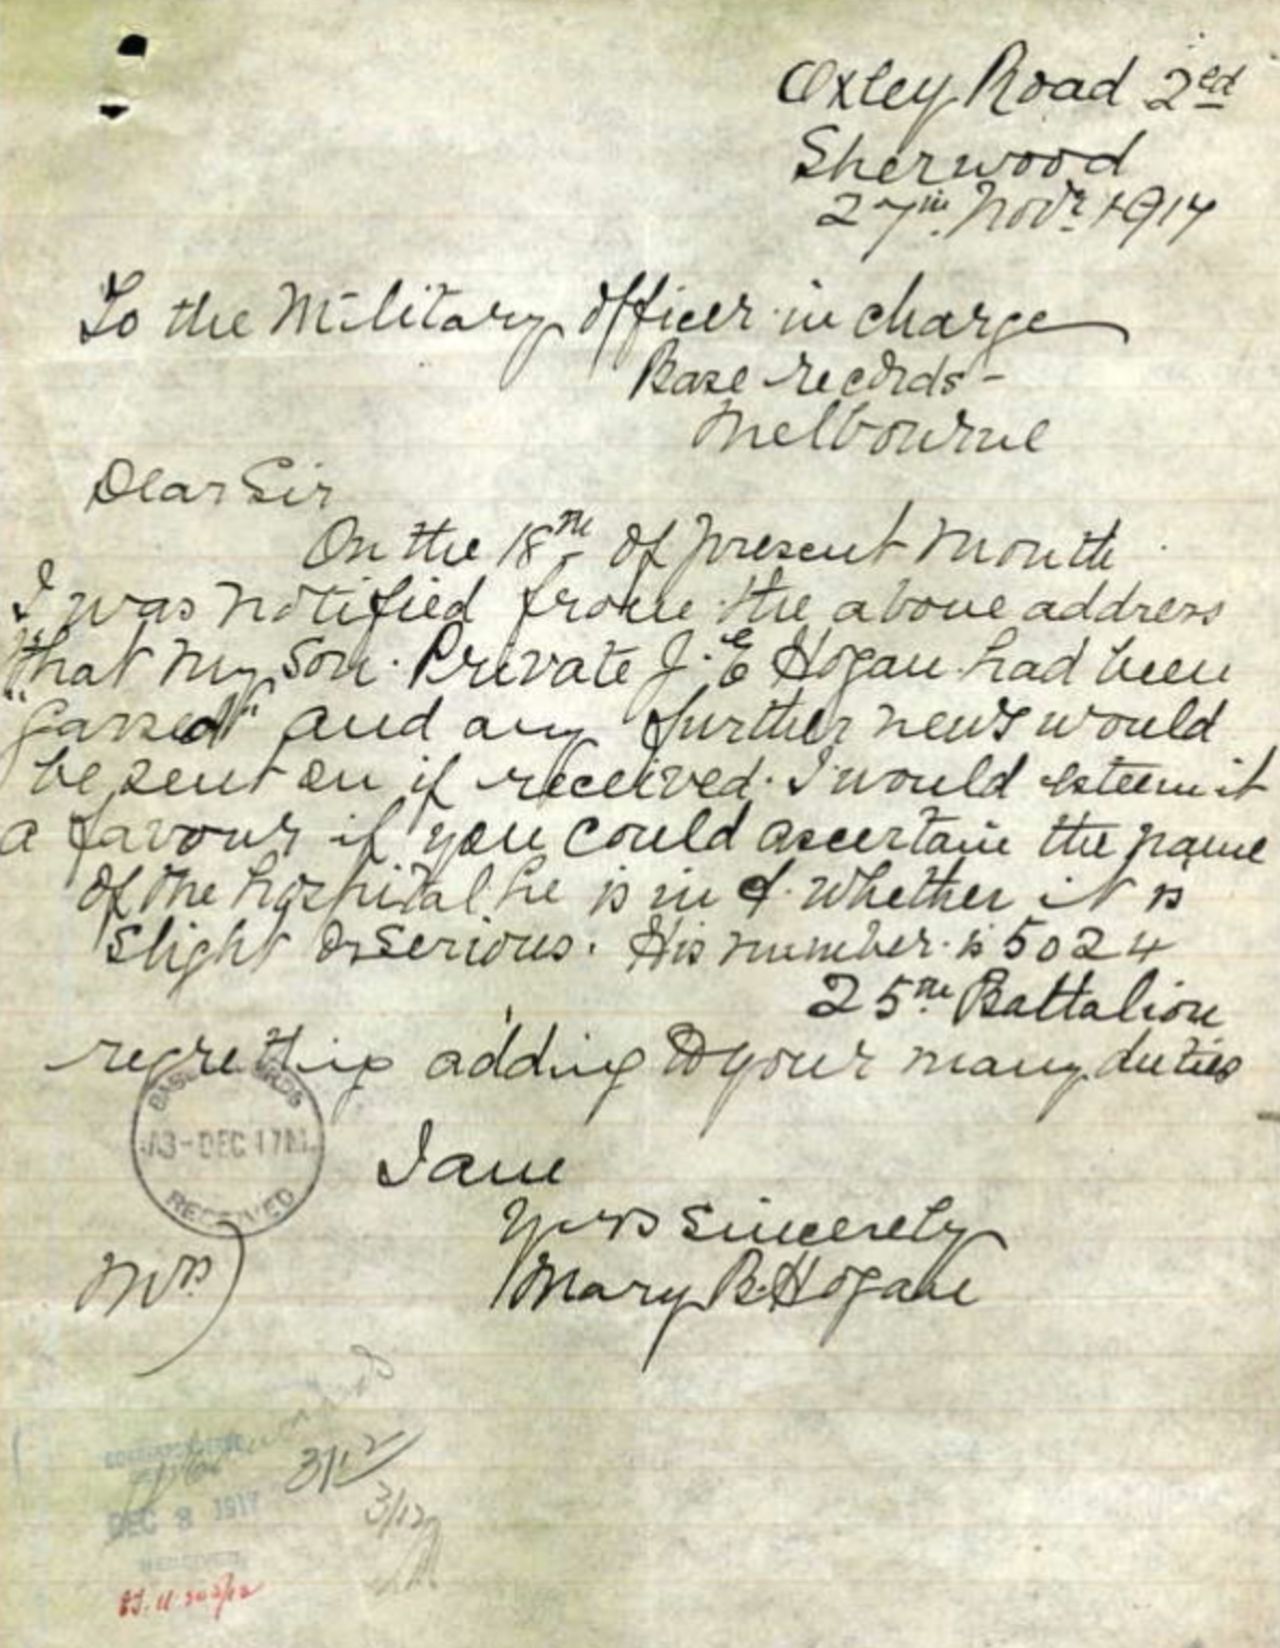 Oxley Road
Sherwood
27th Novr 1917
To the Military Officer in charge
Base records -
Melbourne
Dear Sir
On the 18th of present month
I was notified from the above address
that my son Private J. E Hogan had been
"Gassed" and any further news would
be sent on if received. I would esteem it
a favour if you could ascertain the name
of the hospital he is in & whether it is
slight or serious. His number is 5024
25th Battalion
regretting adding to your many duties
I am
Yours sincerely
Mary B. Hogan
Mrs)
BASE RECORDS
3-DEC 17
RECEIVED
3/12
3/12
DEC 8 1917
RECEIVED